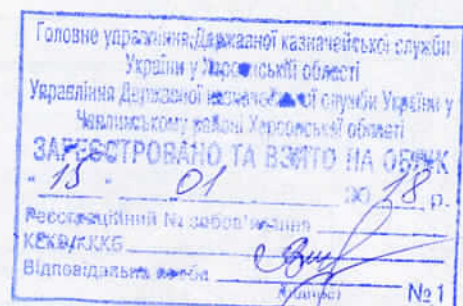 Головне управління Державної казначейської служби
України у Херсонській області
Управління Державної казначейської служби України у
Чаплинському районі Херсонської області
ЗАРЕЄСТРОВАНО ТА ВЗЯТО НА ОБЛІК
" 15 " 01 20 18 р.
Реєстраційний № зобов'язання
КЕКВ/ККБ
Відповідальна особа
(підпис) № 1